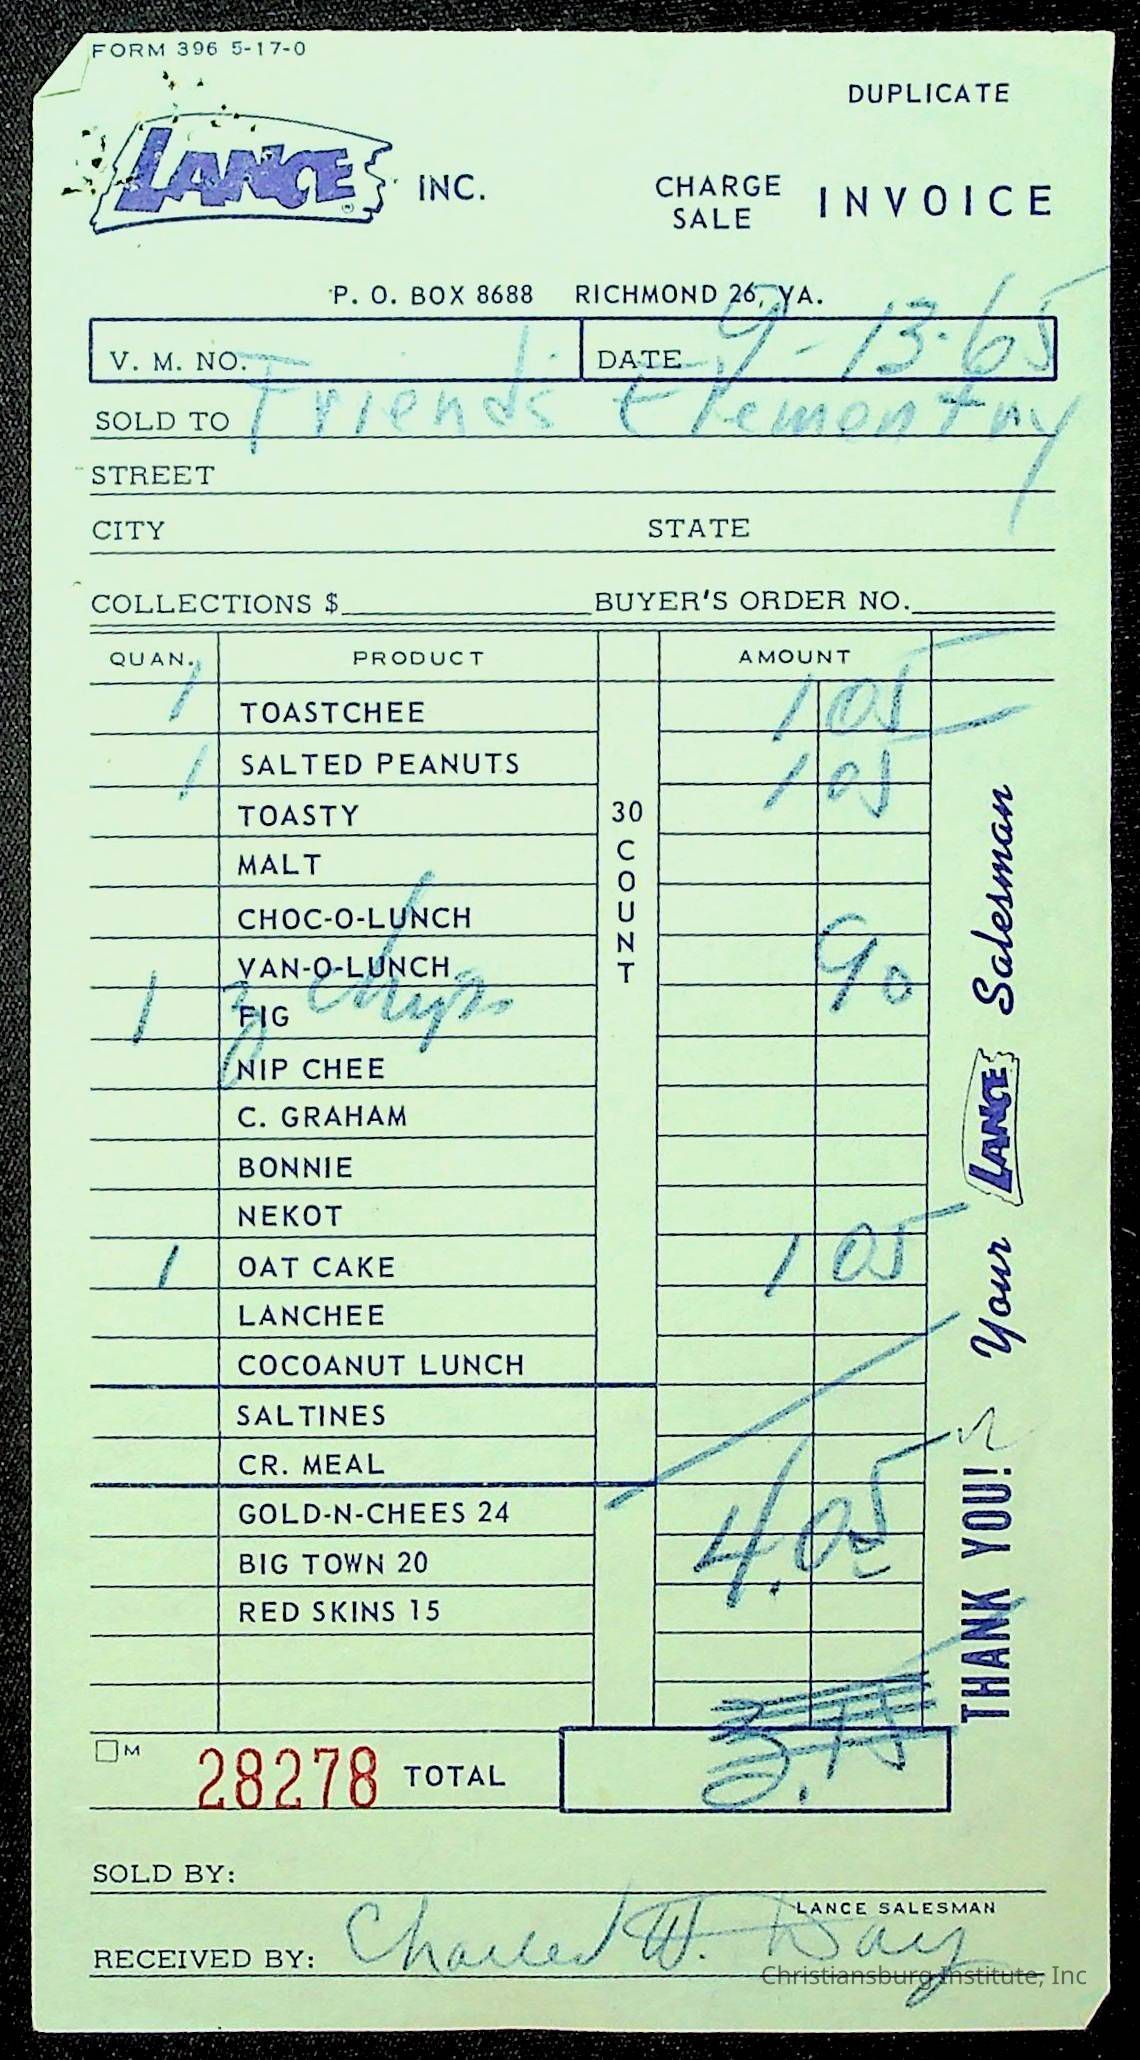 FORM 396 5-17-0
DUPLICATE
LANCE ® INC.
CHARGE SALE INVOICE
P. O. BOX 8688 RICHMOND 26, VA.
V. M. NO. DATE 9-13-65
SOLD TO Friends Elementry
STREET
CITY STATE
COLLECTIONS $ BUYER'S ORDER NO.
QUAN. PRODUCT AMOUNT
1 TOASTCHEE 1 05
1 SALTED PEANUTS 1 05
TOASTY
MALT
CHOC-O-LUNCH
VAN-O-LUNCH 90
1 FIG chips
NIP CHEE
C. GRAHAM
BONNIE
NEKOT
1 OAT CAKE 1 05
LANCHEE
COCOANUT LUNCH
30 COUNT
SALTINES
CR. MEAL
GOLD-N-CHEES 24 4.05
BIG TOWN 20
RED SKINS 15
M 28278 TOTAL 3.15
THANK YOU! Your LANCE Salesman
SOLD BY:
LANCE SALESMAN
RECEIVED BY: Charles W. Day
Christiansburg Institute, Inc